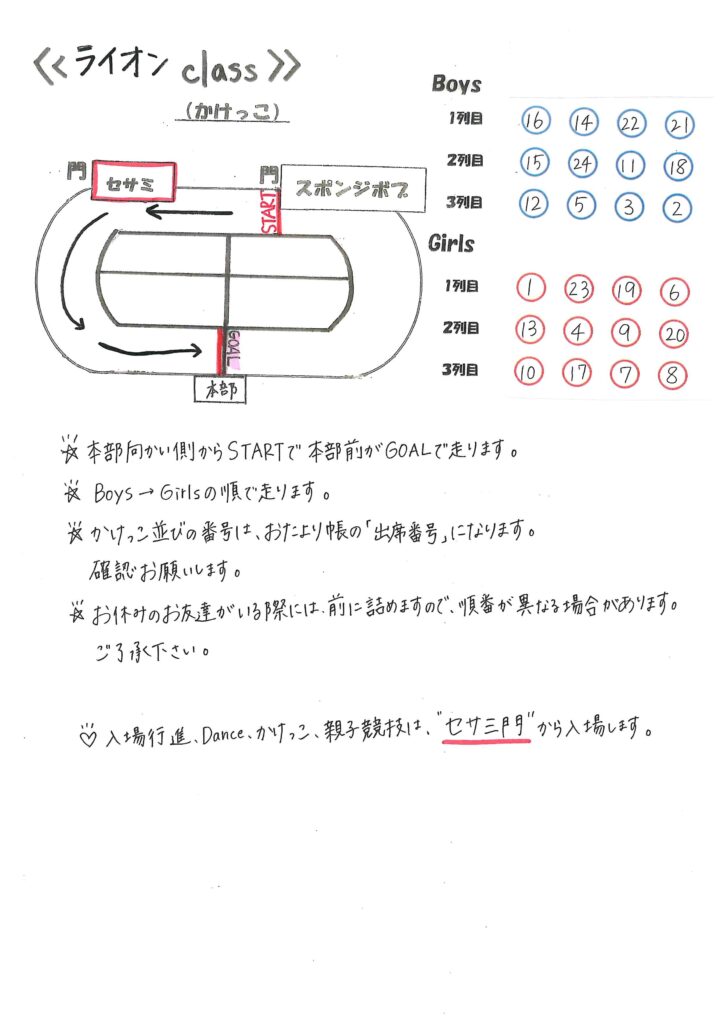 ≪ライオン class≫
(かけっこ)
門 セサミ
門 スポンジボブ
START
GOAL
本部
Boys
1列目 16 14 22 21
2列目 15 24 11 18
3列目 12 5 3 2
Girls
1列目 1 23 19 6
2列目 13 4 9 20
3列目 10 17 7 8
☆ 本部向かい側からSTARTで本部前がGOALで走ります。
☆ Boys→Girlsの順で走ります。
☆ かけっこ並びの番号は、おたより帳の「出席番号」になります。
確認お願いします。
☆ お休みのお友達がいる際には、前に詰めますので、順番が異なる場合があります。
ご了承下さい。
♡ 入場行進、Dance、かけっこ、親子競技は、"セサミ門"から入場します。